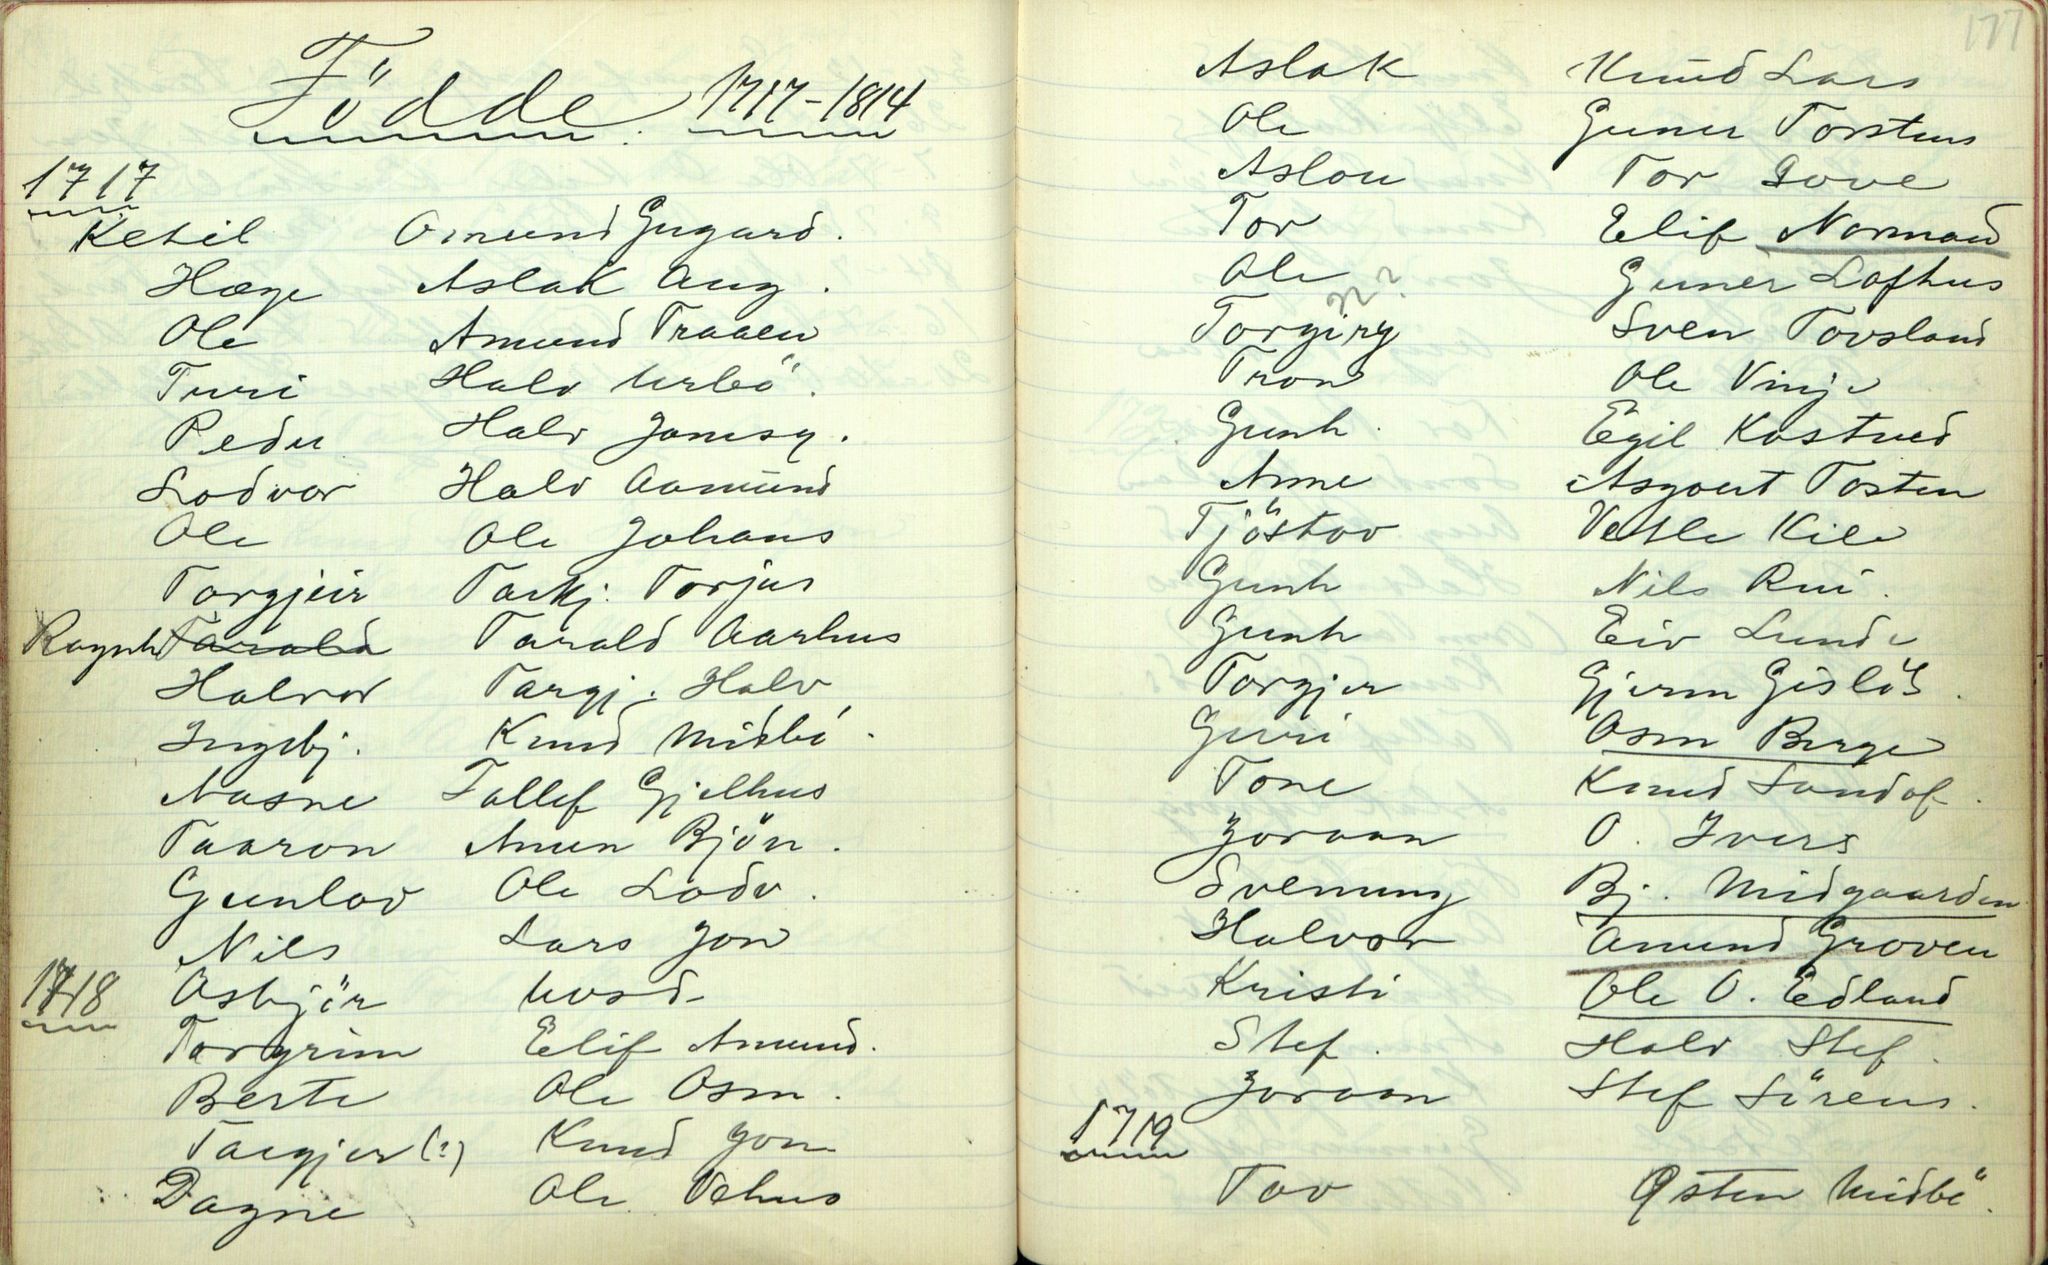 Födde. 1717-1814
1717
Ketil Omund Gugard.
Hæge Aslak Aug.
Ole Amund Traaen
Turi Halv Urbö.
Peder Halv Jamsg.
Lodvor Halv Aamund
Ole Ole Johans
Torgjeir Tarkj. Torjus
Ragnh Tarald Tarald Aarhus
Halvor Targj. Halv
Ingebj. Knud Midbö.
Nasne Tallef Gjelhus
Taaron Amun Bjön.
Gunlov Ole Lodv.
Nils Lars Jon
1718 Asbjör
Torgrim Elif Amund.
Berte Ole Osm.
Targjer (?) Knud Jon
Dagne Ole Vehus
177
Aslak Knud Lars
Ole Guner Torstens
Aslou Tor
Tov Elif Normand
Ole Guner Lofthus
Torgirg Sven Tovsland
Tron Ole Vinje
Gunh. Egil Kostved
Anne Asgout Tosten
Tjöstov Vetle Kile
Gunh Nils Rui.
Gunh Eiv Lunde
Torgjer Gjerm
Guri Osm Berge
Tone Knud Sundof.
Joraan O. Ivers
Svenung Bj. Midgaarden
Halvor Amund Groven
Kristi Ole O. Edland
Stef. Halv Stef.
Joraan Stef Sörens.
1719
Tov Östen Midbö.